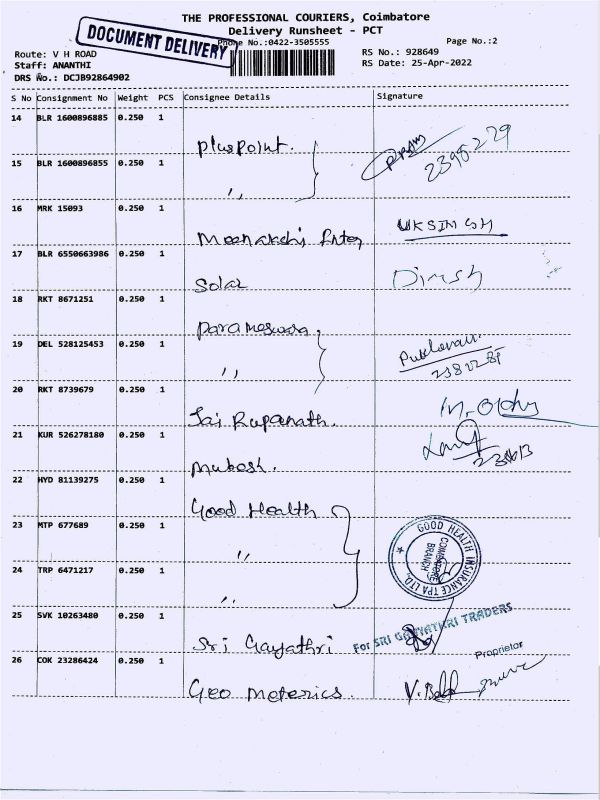 THE PROFESSIONAL COURIERS, Coimbatore
Delivery Runsheet - PCT
DOCUMENT DELIVERY
Phone No.:0422-3505555
Page No.:2
Route: V H ROAD
RS No.: 928649
Staff: ANANTHI
RS Date: 25-Apr-2022
DRS No.: DCJB92864902
S No Consignment No Weight PCS Consignee Details Signature
14 BLR 1600896885 0.250 1
PlusPoint.
15 BLR 1600896855 0.250 1
,,
16 MRK 15093 0.250 1
Meenakshi Enter
17 BLR 6550663986 0.250 1
Solar Dinesh
18 RKT 8671251 0.250 1
Parameswara
19 DEL 528125453 0.250 1
,,
20 RKT 8739679 0.250 1
Jai Rupanath.
21 KUR 526278180 0.250 1
Mukesh.
22 HYD 81139275 0.250 1
Good Health
23 MTP 677689 0.250 1
,,
GOOD HEALTH INSURANCE TPA LTD.
COIMBATORE
BRANCH
24 TRP 6471217 0.250 1
,,
25 SVK 10263480 0.250 1
Sri Gayathri For SRI GAYATHRI TRADERS
Proprietor
26 COK 23286424 0.250 1
Geo Meterics.